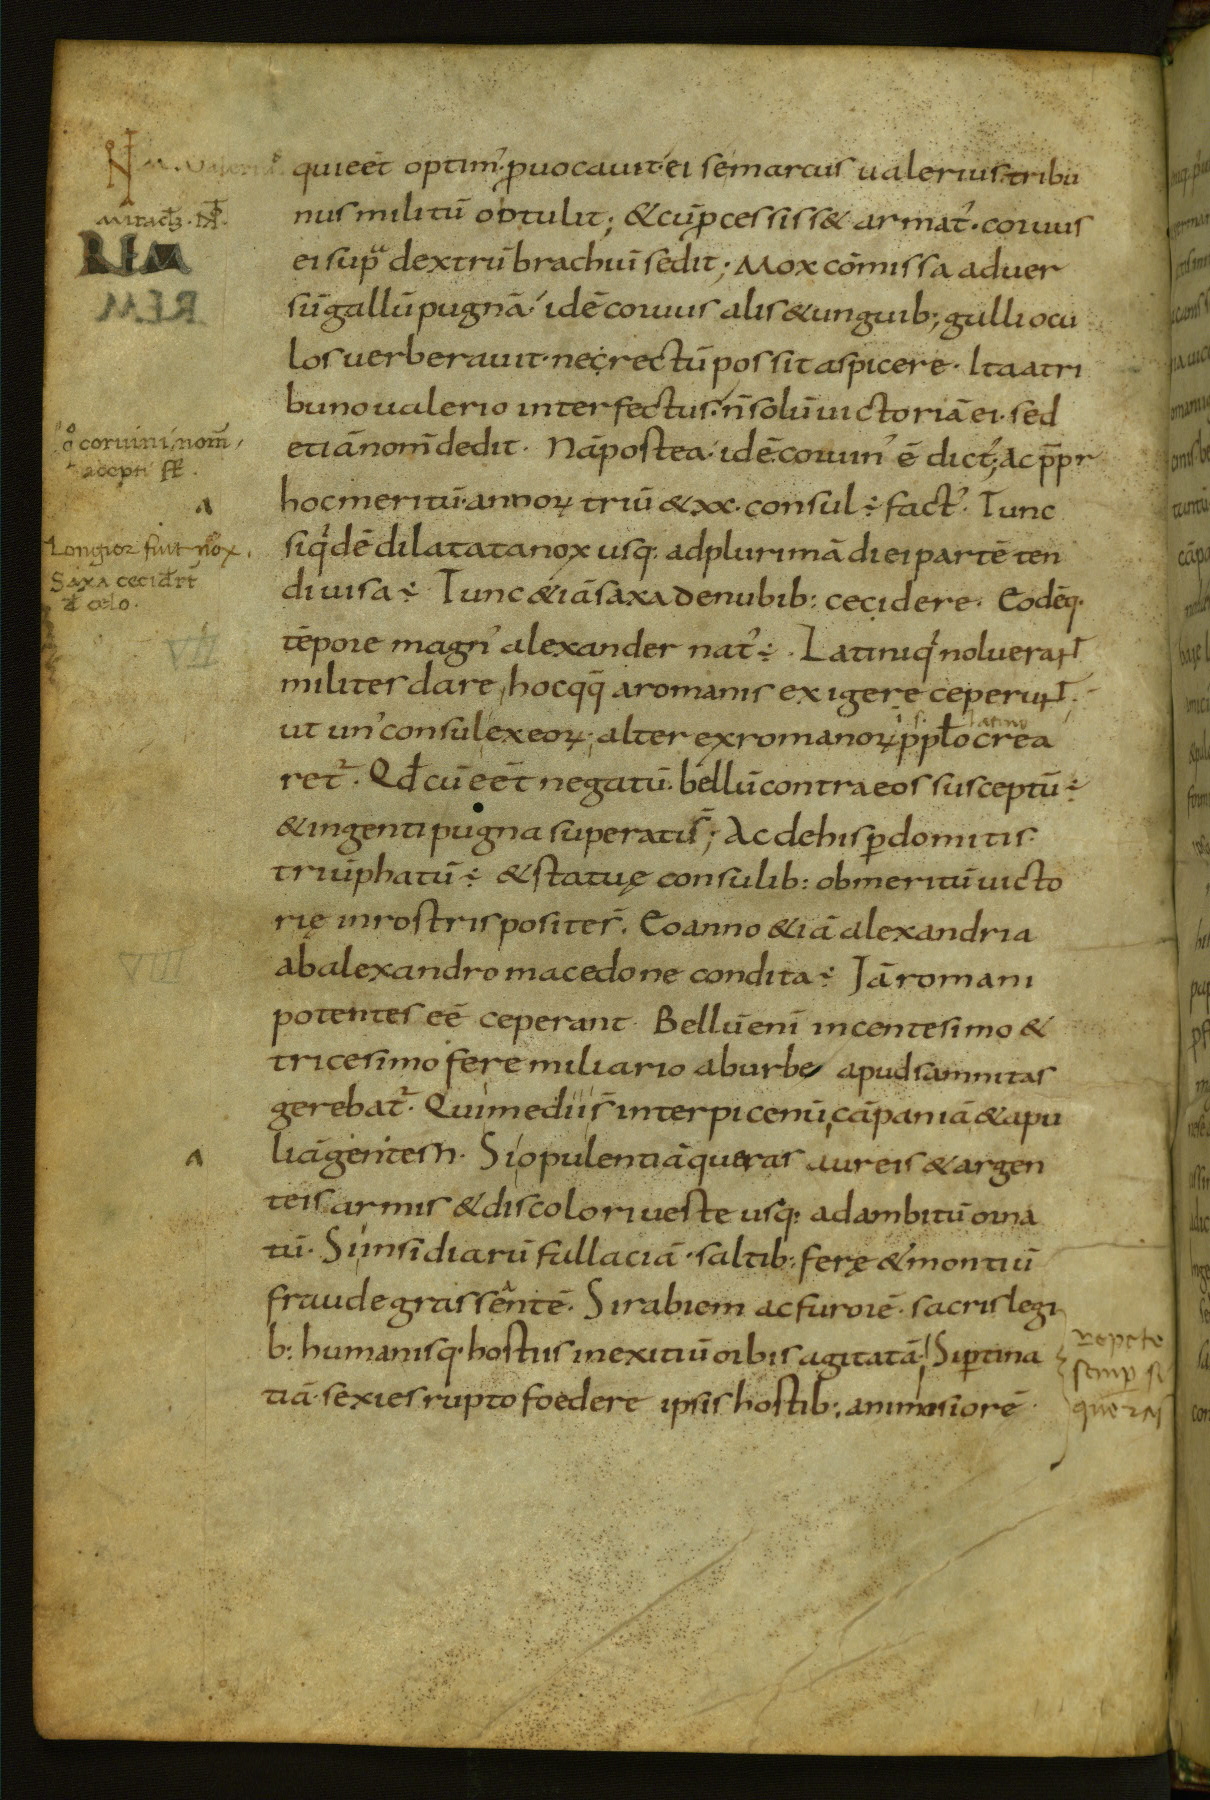 M. Valeriꝰ
quieēt optimꝰ ꝓuocauit ei sē marcus ualerius tribu
nus militū obtulit; & cū ꝓcessiss& armatꝰ. coruus
ei supͣ dextrū brachiū sedit; Mox cōmissa aduer
sū gallū pugnā idē coruus alis & unguib; galli ocu
los uerberauit. ne rectū possit aspicere. Ita a tri
buno ualerio interfectus. ñ solū uictoriā ei. sed
etiā nom̄ dedit. Nā postea idē coruinꝰ ē dictꝰ; ac ꝓpr
hoc meritū annoꝝ triū & xx. consul ÷ factꝰ. Tunc
siqͥdē dilatata nox usq: ad plurimā diei partē ten
di uisa ÷ Tunc & iā saxa de nubib: cecidere. Eodēq.
tēpore magnꝰ alexander natꝰ ÷. Latini qͥ noluerant
milites dare, hoc qq̄ a romanis exigere ceperunt.
ut unꝰ consul ex eoꝝ; alter ex romanoꝝ ppl̄o crea
retᷣ. Qđ cū eēt negatū. bellū contra eos susceptū ÷
& ingenti pugna superati s̄; Ac de his ꝑdomitis
triūphatū ÷ & statuę consulib: ob meritū uicto
rię in rostris posite s̄. Eo anno & iā alexandria
ab alexandro macedone condita ÷ Jā romani
potentes eē ceperant. Bellū enī in centesimo &
tricesimo fere miliario ab urbe apud samnitas
gerebatᷣ. Qui medii s̄ inter picenū, cāpaniā & apu
liā gentesn. Si opulentiā queras aureis & argen
teis armis & discolori ueste usq: ad ambitū orna
tū. Si insidiarū fallaciā. saltib: ferę & montiū
fraude grassantē. Si rabiem ac furorē. sacris legi
b: humanisq. hostiis in exitiū orbis agitatā. Si ꝑtina
tiā. sexies rupto foedere ipsis hostib: animosiorē
latino
REM
REM
coruini nom̄
accepti
Longior fuit nox.
Saxa cecider̄t
đ celo.
VII
VIII
repete
semꝑ si
queras